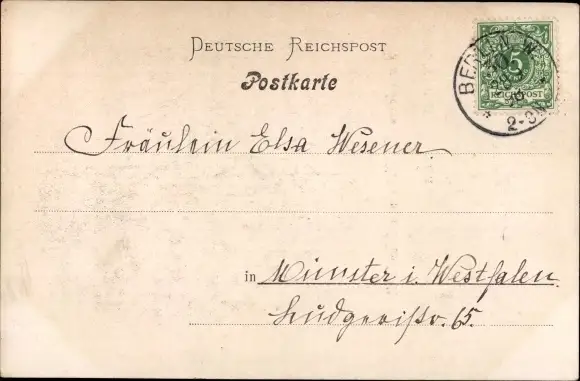 DEUTSCHE REICHSPOST
Postkarte
BERLIN W.
5
REICHSPOST
2-3N
Fräulein Elsa Wesener.
in Münster i. Westfalen.
Ludgeristr. 65.